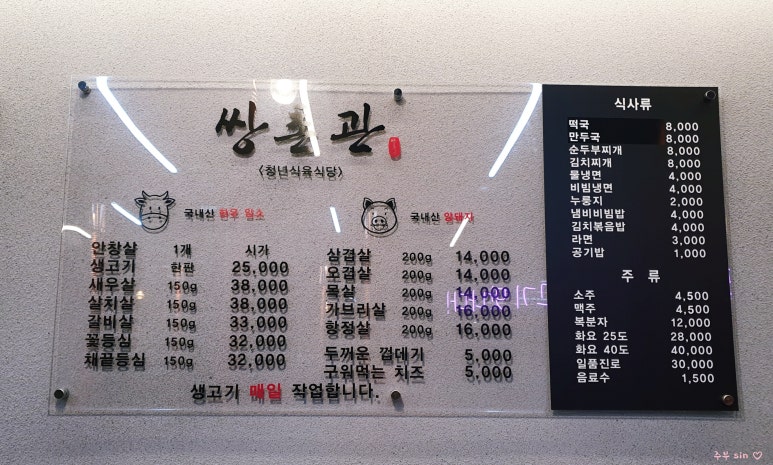 쌍촌관
<청년식육식당>
국내산 한우 암소
안창살 1개 시가
생고기 한판 25,000
새우살 150g 38,000
살치살 150g 38,000
갈비살 150g 33,000
꽃등심 150g 32,000
채끝등심 150g 32,000
국내산 암돼지
삼겹살 200g 14,000
오겹살 200g 14,000
목살 200g 14,000
가브리살 200g 16,000
항정살 200g 16,000
두꺼운 껍데기 5,000
구워먹는 치즈 5,000
생고기 매일 작업합니다.
식사류
떡국 8,000
만두국 8,000
순두부찌개 8,000
김치찌개 8,000
물냉면 4,000
비빔냉면 4,000
누룽지 2,000
냄비비빔밥 4,000
김치볶음밥 4,000
라면 3,000
공기밥 1,000
주 류
소주 4,500
맥주 4,500
복분자 12,000
화요 25도 28,000
화요 40도 40,000
일품진로 30,000
음료수 1,500
주부 sin ♡